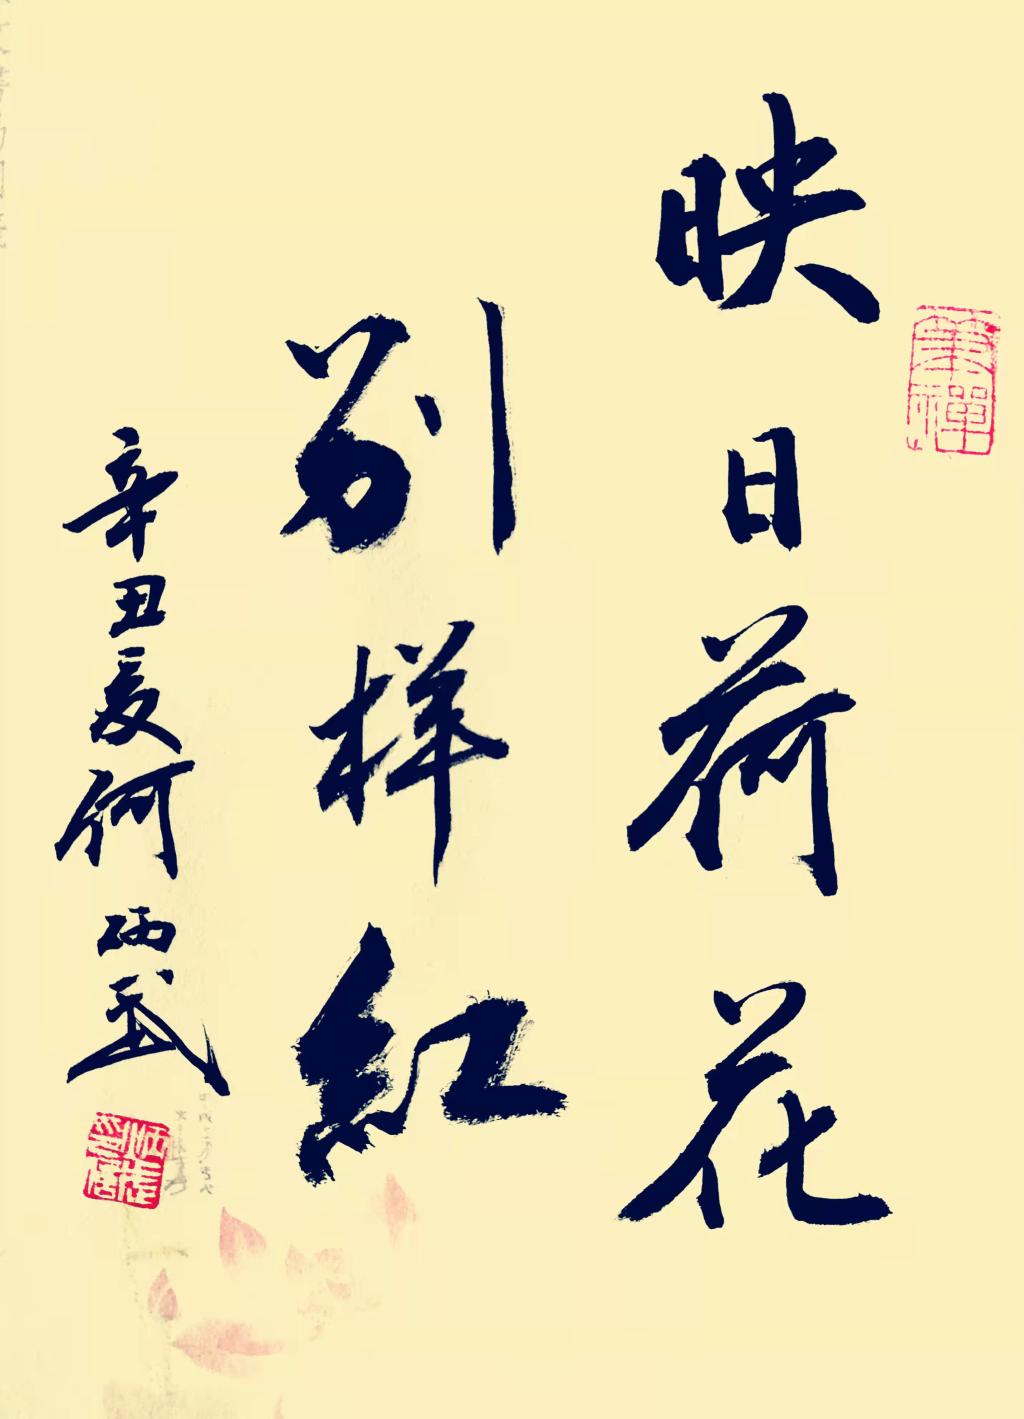 映日荷花
别样紅
辛丑夏何炳武